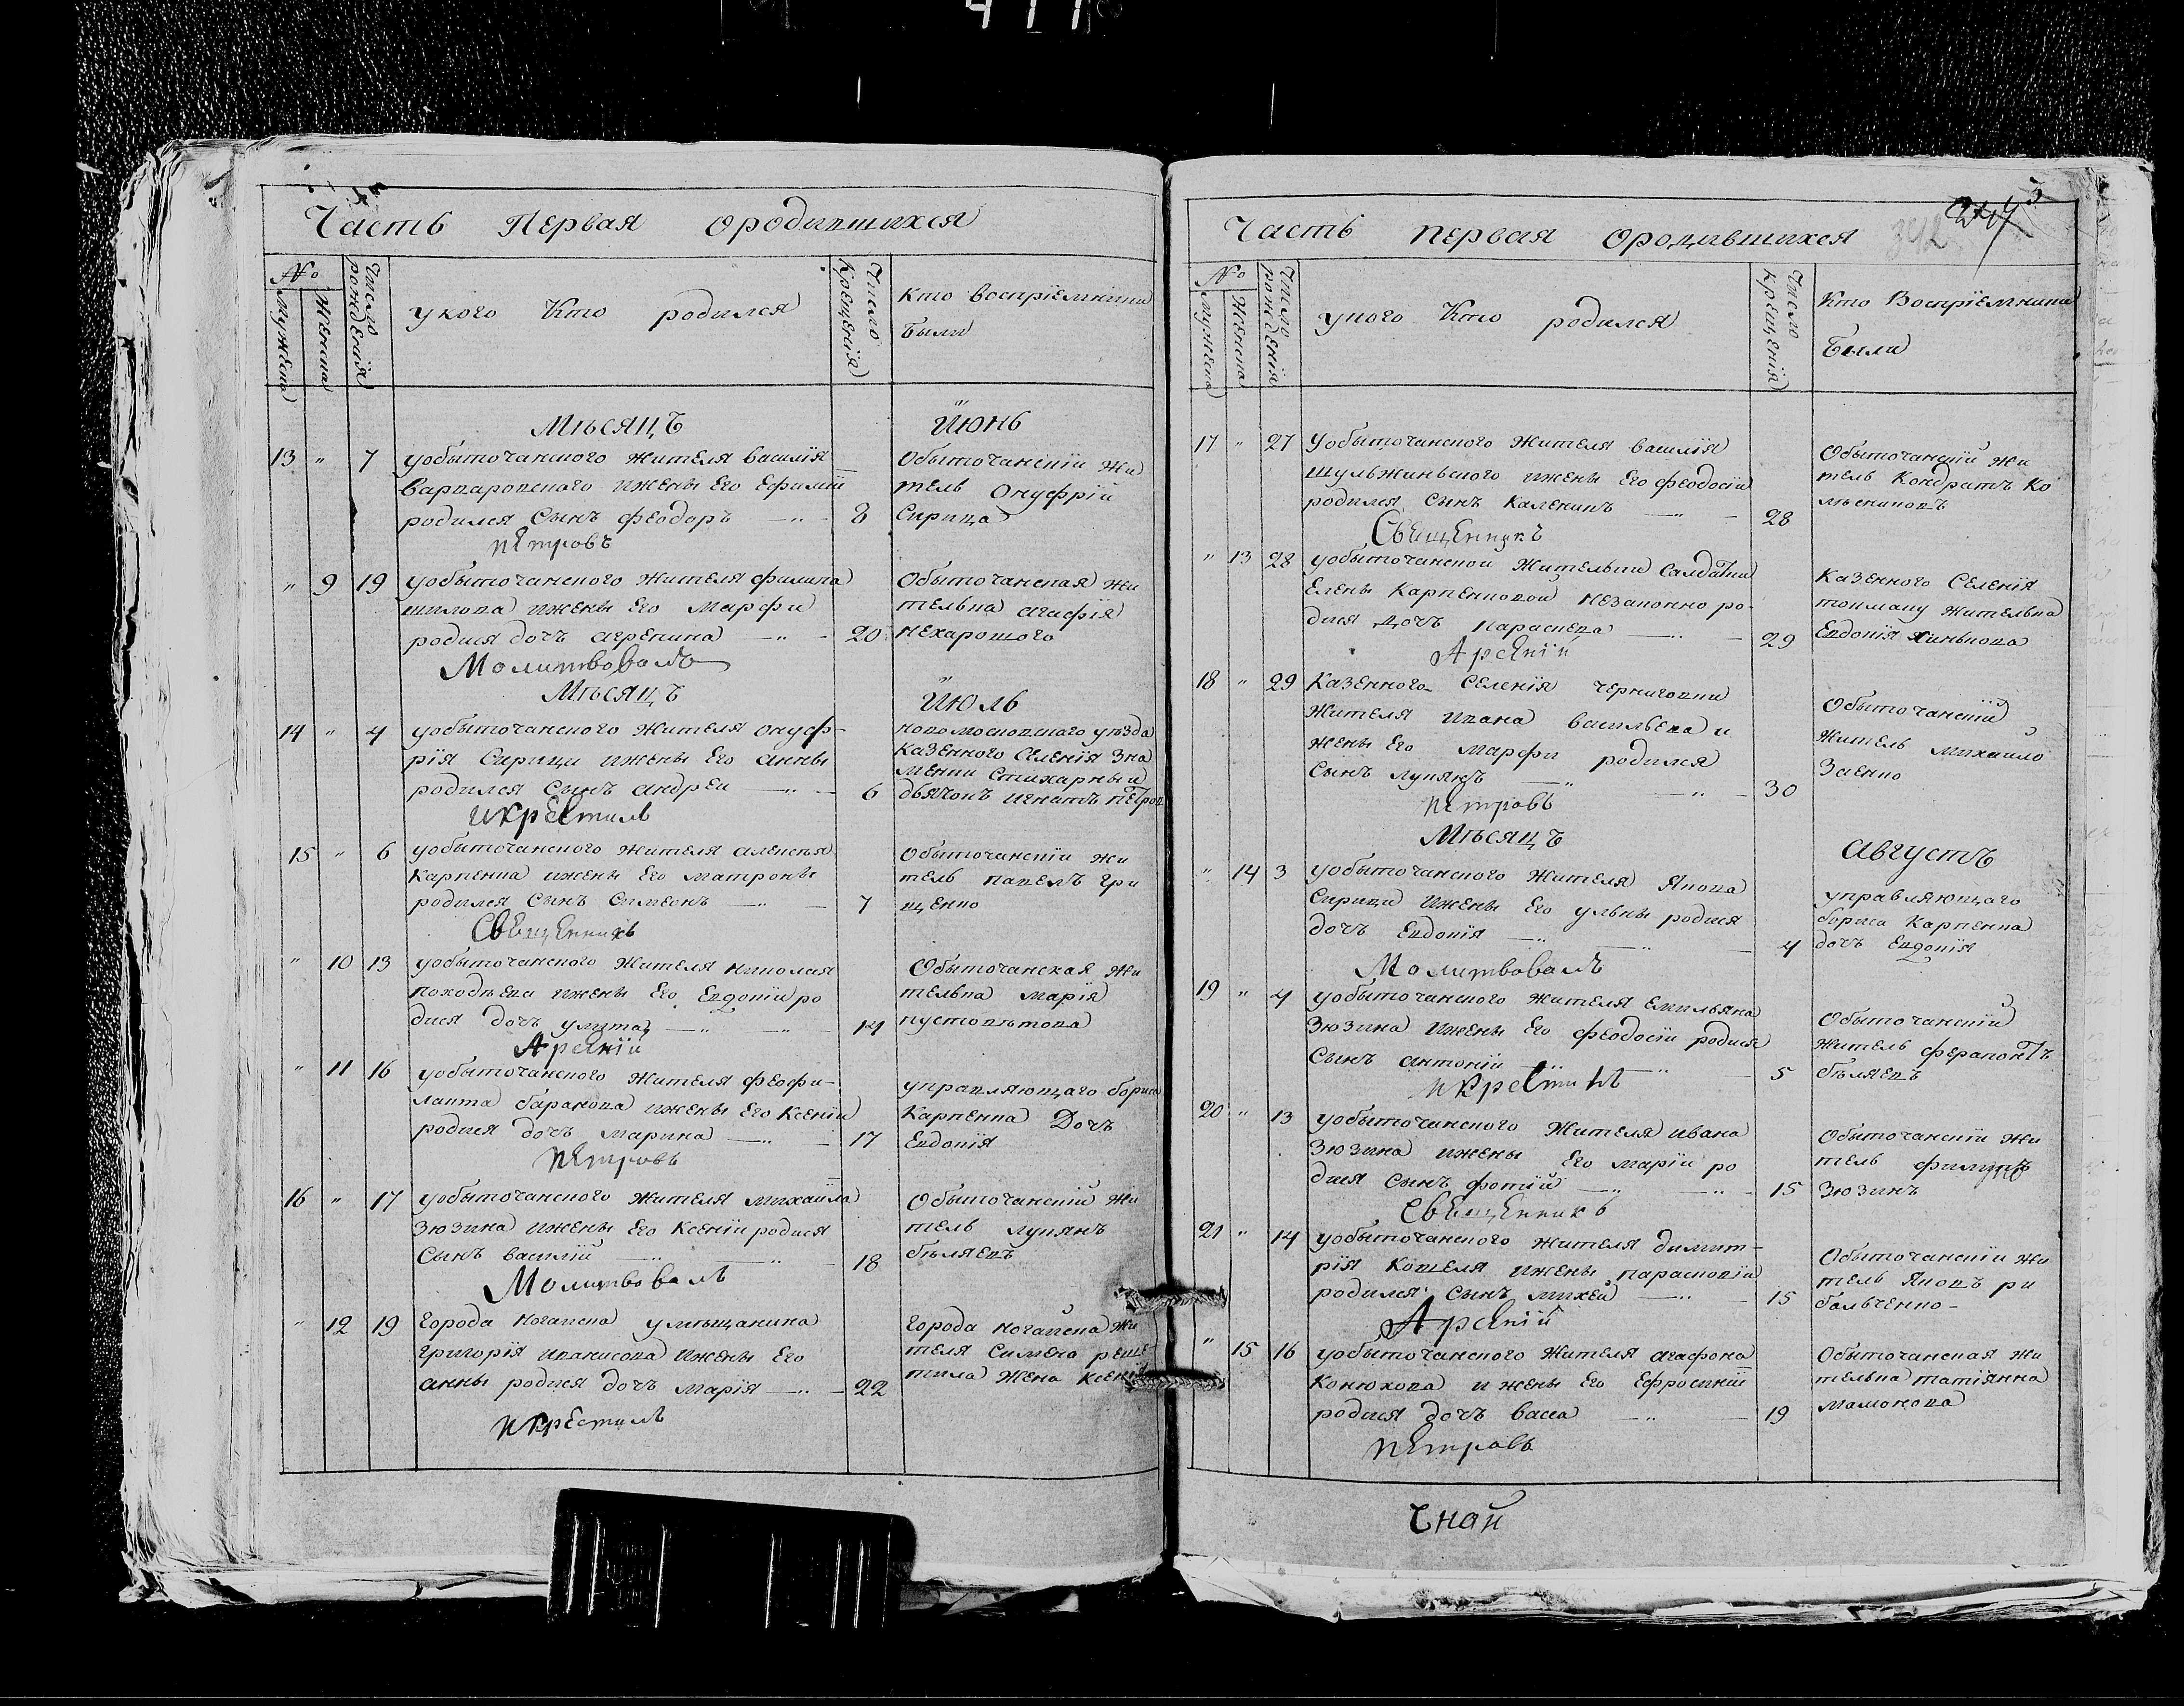 Часть Первая ородившихся
№
Мужена
Женина
Число рождения
укого Кто родился
Число Крещения
Кто восприемники
были
Мѣсяцъ Июнь
13 " 7 уобыточанского жителя василія
варваровского ижены Его Ефимии
родился сынъ феодоръ 8
Обыточанскiи жи
тель Онуфрiй
Сирица
пЕтровъ
" 9 19 уобыточанского жителя филипа
шилова ижены Его Марфи
родися дочъ агрепина 20
Обыточанская жи
телька агафiя
нехарошого
Молитвовалъ
Мѣсяцъ Июль
14 " 4 уобыточанского жителя онуф-
рiя Сирици ижены Его анны
родился Сынъ андреи 6
новомосковского уѣзда
казенного Селенiя Зна
менки Стихарный
дьячокъ игнатъ петров
икрЕстилъ
15 " 6 уобыточанского жителя алексѣя
Карпенка ижены Его матроны
родился Сынъ Симеонъ 7
Обыточанскiи жи
тель павелъ гри
ценко
СвЕщЕнникъ
" 10 13 уобыточанского жителя николая
походѣева ижены Его Евдокiи ро
дися дочъ улита 14
Обыточанская жи
телька марiя
пустовѣтова
АрсЕнiи
" 11 16 уобыточанского жителя феофи-
лакта баранова ижены Его Ксенiи
родися дочъ марина 17
управляющаго бориса
Карпенка Дочъ
Евдокiя
пЕтровъ
16 " 17 уобыточанского жителя михаила
Зюзина ижены Его Ксенiи родися
Сынъ василiй 18
Обыточанскiй жи
тель лупянъ
бѣляевъ
Молитвовалъ
" 12 19 города ногайска умѣщанина
григорiя ижены Его
анны родися дочъ марiя 22
города ногайска жи
теля Симена реше-
тила жена Ксенiя
икрЕстилъ
Часть первая ородившихся
342
№
Мужена
Женина
Число рожденiя
укого Кто родился
Число крещенiя
Кто Восприемники
были
17 " 27 уобыточанского жителя василiя
шульжинвского ижены Его феодосiи
родился сынъ Каленикъ 28
Обыточанскiй жи
тель Кондратъ Ко
лѣсниковъ
СвЕщЕнникъ
" 13 28 уобыточанской жительки Салдатки
Елены Карпенковой незаконно ро-
дися дочъ параскева 29
казенного Селенiя
токмаку жителька
Евдокiя
АрсЕнiи
18 " 29 казенного Селенiя черниговки
жителя ивана васильева и
жены Его марфи родился
Сынъ лупянъ 30
Обыточанскiй
житель михайло
Заенко
пЕтровъ
Мѣсяцъ Августъ
" 14 3 уобыточанского жителя Якова
Сирици ижены Его ульны родися
дочъ Евдокiя 4
управляющаго
бориса Карпенка
дочъ Евдокiя
Молитвовалъ
19 " 4 уобыточанского жителя Емильяна
Зюзина ижены Его феодосiи родися
Сынъ антонiи 5
Обыточанскiй
житель ферапонтъ
бѣляевъ
икрЕстилъ
20 " 13 уобыточанского жителя ивана
Зюзина ижены Его марiи ро
дися Сынъ фотiй 15
Обыточанскiи жи
тель филипъ
Зюзинъ
СвЕщЕнникъ
21 " 14 уобыточанского жителя димит-
рiя Кошеля ижены парасковiи
родился Сынъ михей 15
Обыточанскiи жи
тель Яковъ ри
бальченко-
АрсЕнiй
" 15 16 уобыточанского жителя агафона
Конюхова и жены Его Ефросинiи
родися дочъ васса 19
Обыточанская жи
телька татiянна
мамонова
пЕтровъ